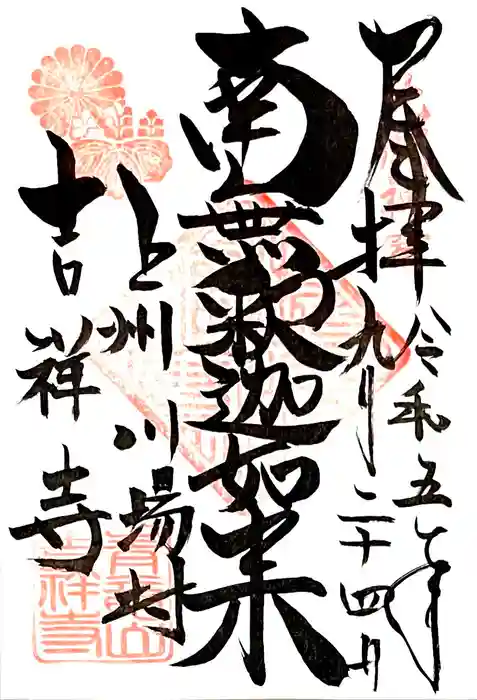 令和五年
拝 九月二十四日
南無釈迦如来
上州川場村
吉祥寺
青龍山
吉祥寺